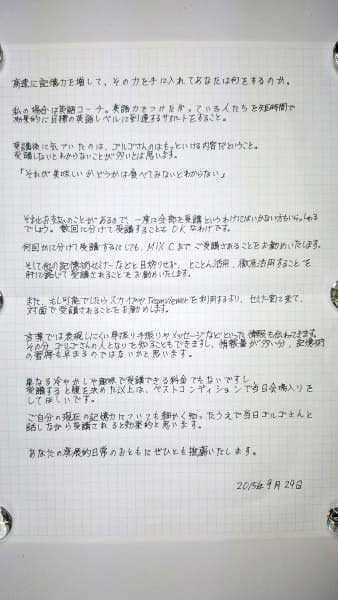 高速に記憶力を増して、その力を手に入れてあなたは何をするのか。
私の場合は英語コーチ。英語力をつけたがっている人たちを短時間で
効果的に目標の英語レベルに到達するサポートをすること。
受講後に気づいたのは、ゴルゴさんのはもっといける内容だということ。
受講しないとわからないことが多いとは思います。
「それが美味しいかどうかは食べてみないとわからない」
それとお支払いのことがあるので、一度に全部を受講というわけにはいかない方もいらっしゃる
でしょう。数回に分けて受講することもOKなわけです。
何回かに分けて受講するにしても、MIX Cまでご受講されることをお勧めいたします。
そして他の記憶術セミナーなどと目移りせず、とことん活用、徹底活用することを
肝に銘じて受講されることをお勧めいたします。
また、もし可能でしたらスカイプやTeamViewerを利用するより、セミナー会場に来て、
対面で受講されることをお勧めします。
言葉では表現しにくい身振り手振りやメッセージなどといった情報も伝わってきます。
その分、ゴルゴさんの人となりを知ることもできますし、情報量が多い分、記憶術
の習得も早まるのではないかと思います。
単なる冷やかしや趣味で受講できる料金でもないですし、
受講すると腹を決めた以上は、ベストコンディションで当日会場入りを
してほしいです。
ご自分の現在の記憶力についても細かく知ったうえで当日ゴルゴさんと
話しながら受講されると効果的と思います。
あなたの発展的日常のおともにぜひとも推薦いたします。
2015年9月29日